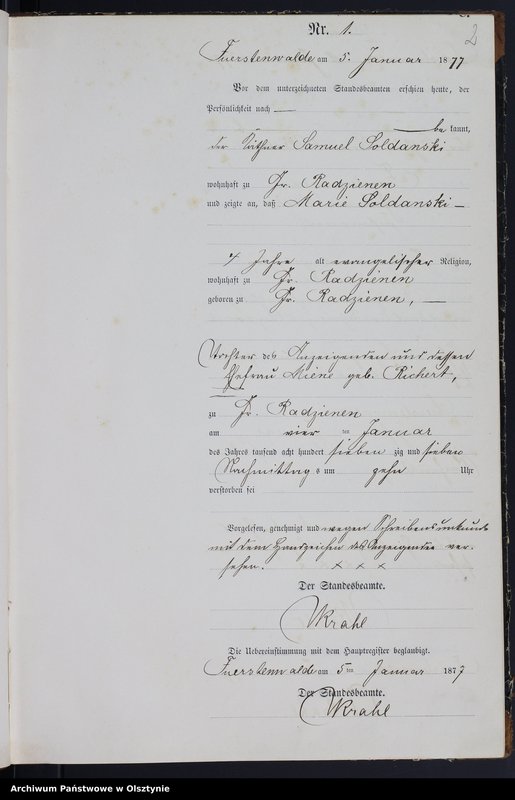 2
Nr. 1.
Fuerstenwalde am 5. Januar 1877
Vor dem unterzeichneten Standesbeamten erschien heute, der
Persönlichkeit nach —
— be kannt,
der Käthner Samuel Soldanski
wohnhaft zu Gr. Radzienen
und zeigte an, daß Marie Soldanski —
Jahre alt evangelischer Religion,
wohnhaft zu Gr. Radzienen
geboren zu Gr. Radzienen, —
Tochter des Anzeigenden und dessen
Ehefrau geb. Richert,
zu Gr. Radzienen
am vier ten Januar
des Jahres tausend acht hundert sieben zig und sieben
Nachmittag s um zehn Uhr
verstorben sei
Vorgelesen, genehmigt und wegen Schreibensunkunde
mit dem Handzeichen des Anzeigenden ver-
sehen. × × ×
Der Standesbeamte.
Wkrahl
Die Uebereinstimmung mit dem Hauptregister beglaubigt.
Fuerstenwalde am 5ten Januar 1877
Der Standesbeamte.
Wkrahl
Archiwum Państwowe w Olsztynie